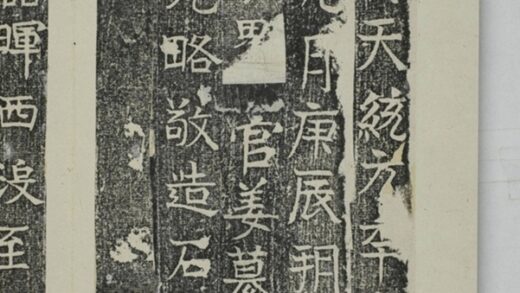 天統元年
月庚辰朔
男官姜纂
元略敬造石
暉西没至